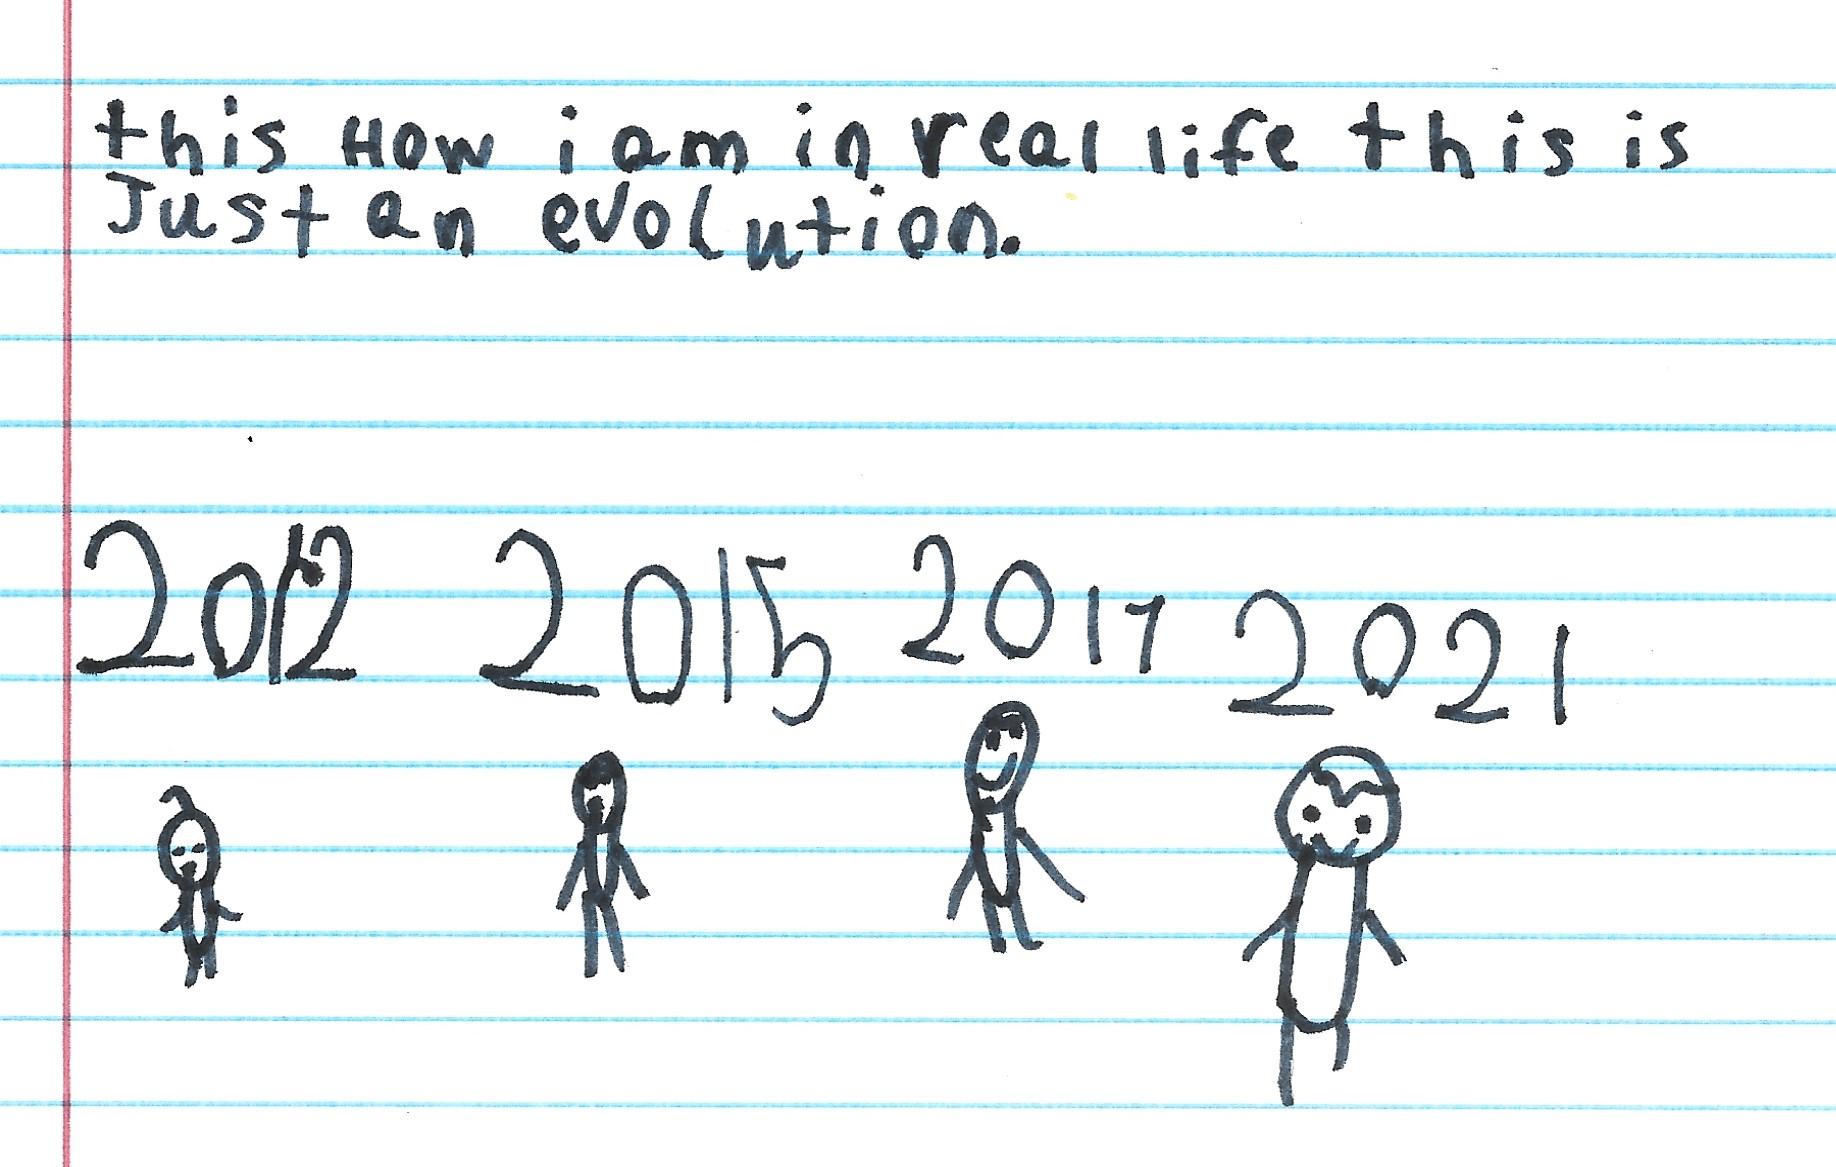 this How i am in real life this is
Just an evolution.
2012 2015 2017 2021